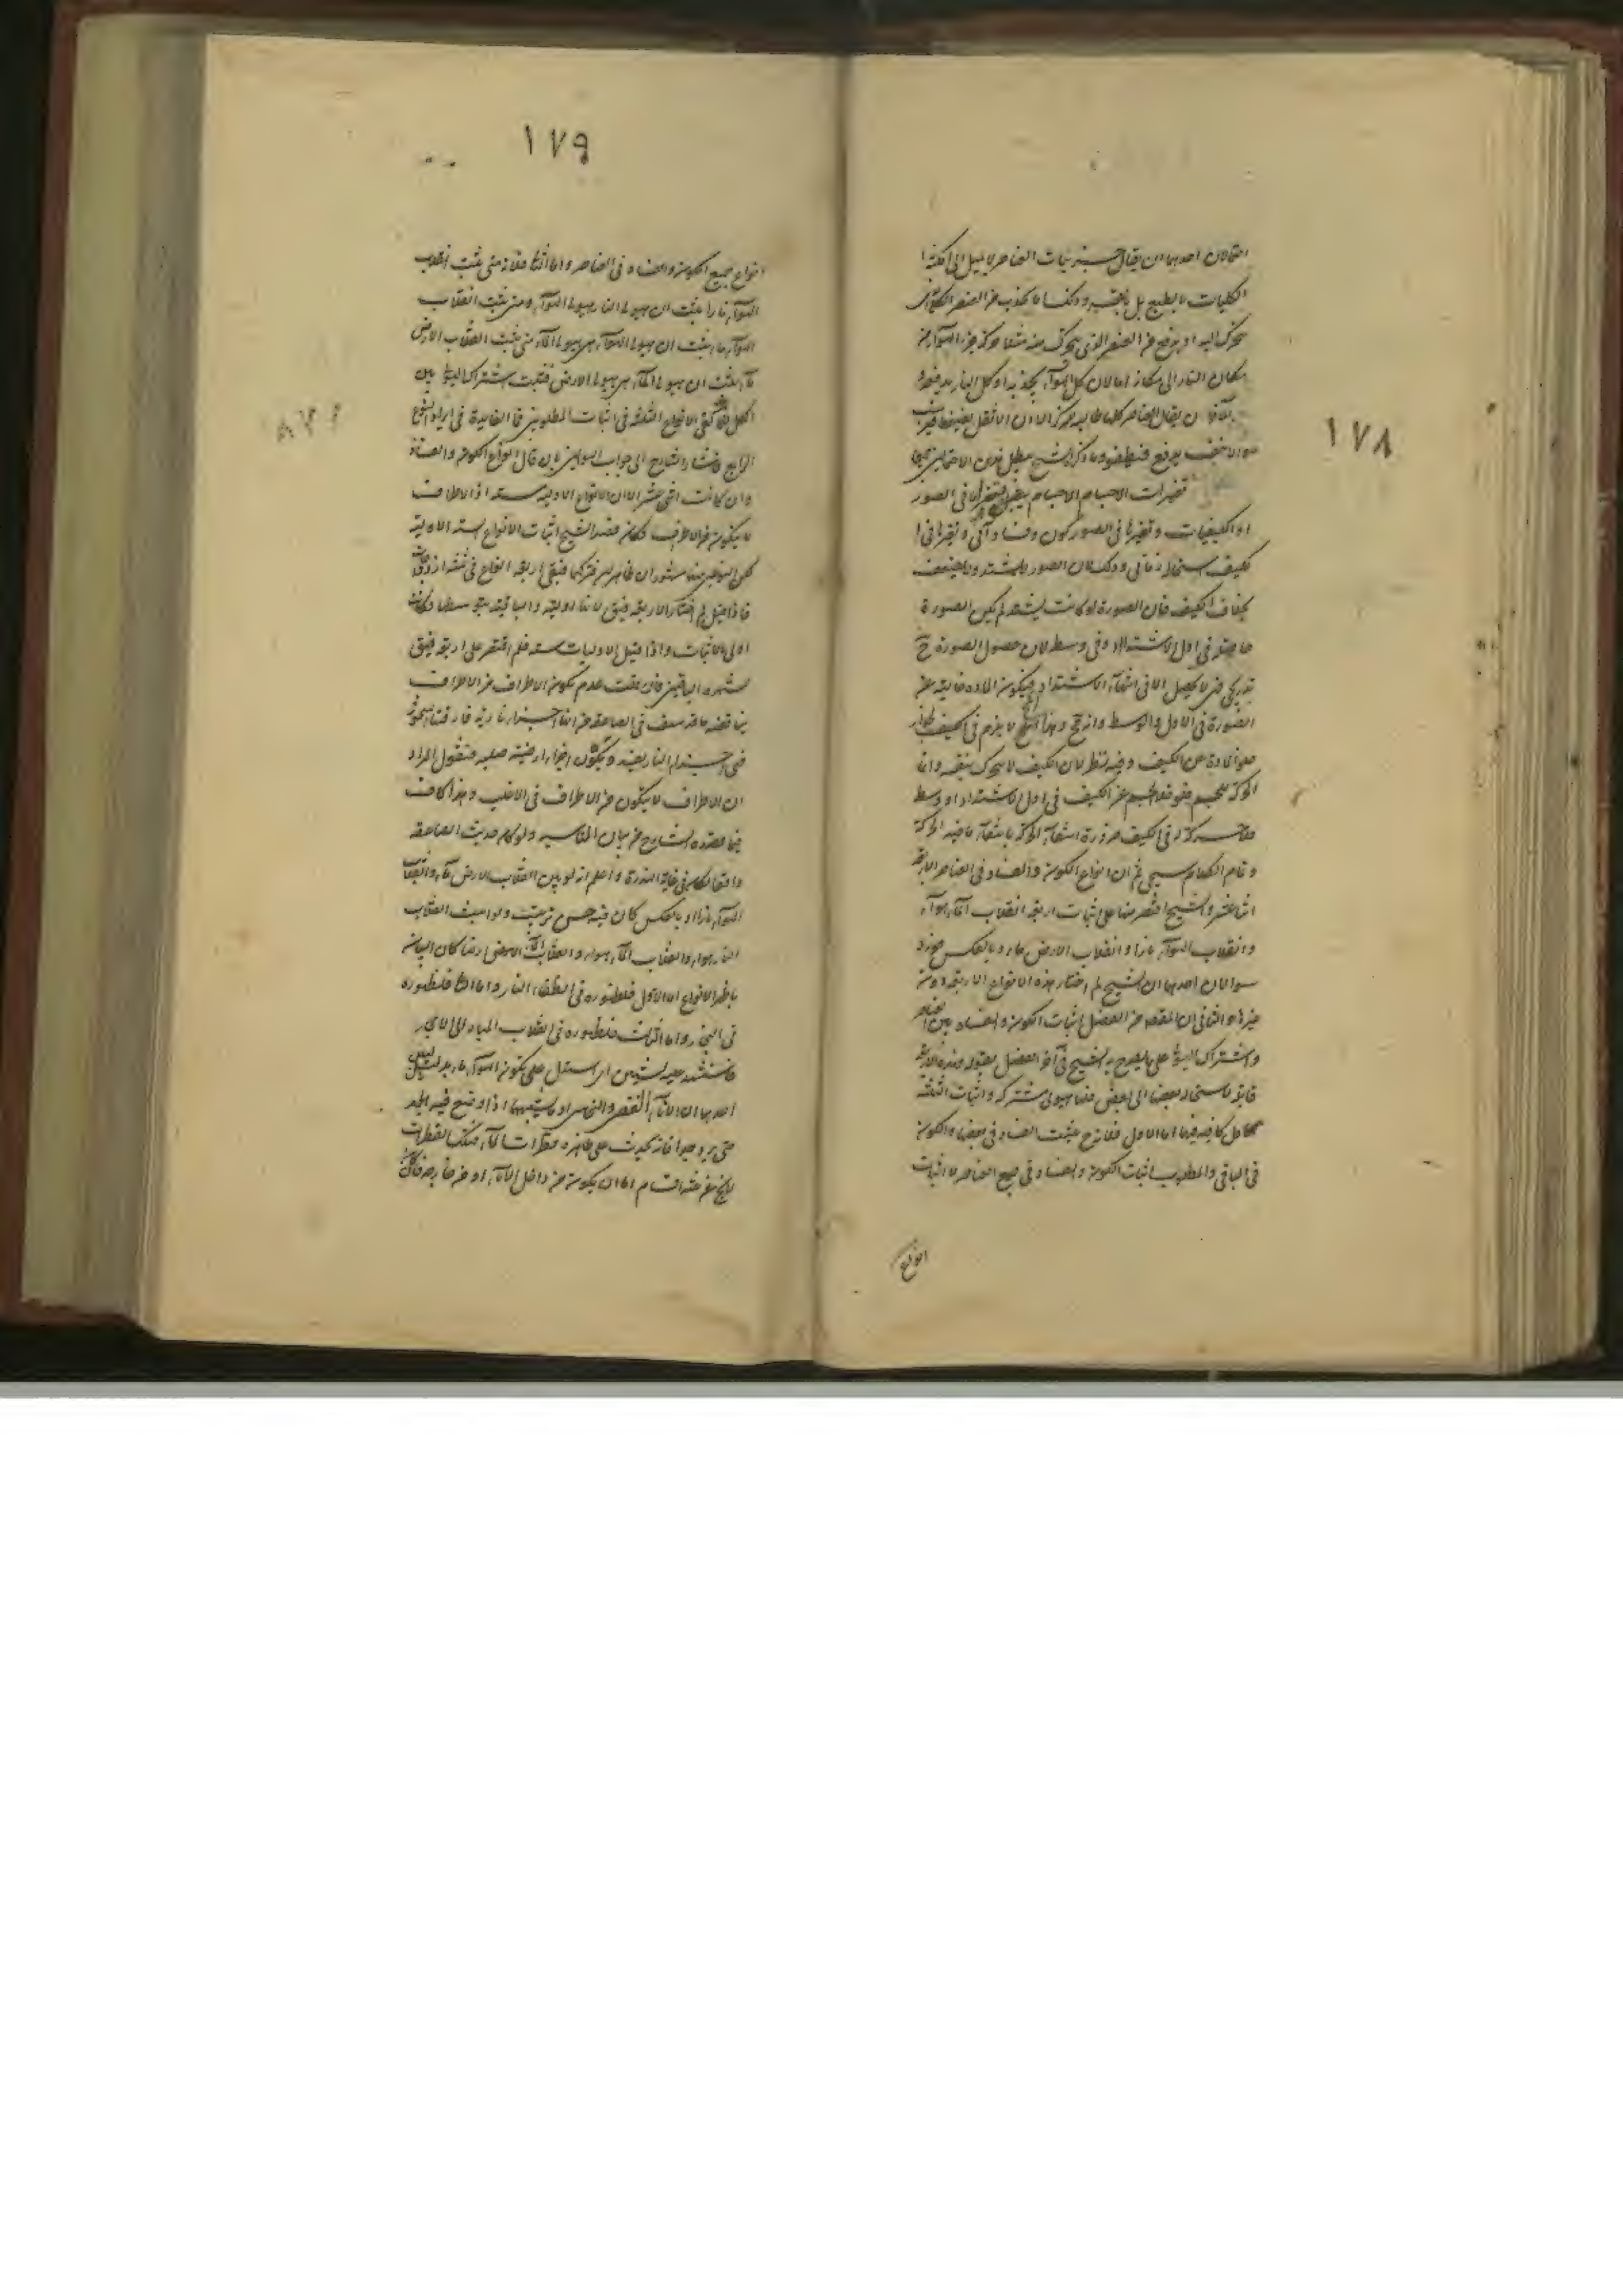 ١٧٨
احتمالان احدهما ان يقال جزئيات العناصر لا تميل الى امكنة
الكليات بالطبع بل بالقسر وذلك اما بجذب من العنصر الكلى الذى
يتحرك اليه او بدفع من العنصر الذى يتحرك عنه مثلا حركة جزء الهواء من
مكان النار الى مكانه اما لان كل الهواء يجذبه او كل النار يدفعه و
الآخر ان يقال العناصر كلها طالبة للمركز الا ان الاثقل يضغط
الاخف يدفع فيطفو وما ذكره الشيخ يبطل هذين الاحتمالين
تغيرات الاجسام الاجسام يتغير فى الصور
او الكيفيات وتغيرها فى الصور كون وفساد آنى وتغيرها فى ا
لكيف استحالة زمانى وذلك لان الصور لا تشتد ولا تضعف
بخلاف الكيف فان الصورة لو كانت تشتد لم يكن الصورة
حاصلة فى اول الاشتداد وفى وسطه لان حصول الصورة ح
تدريجى فلا يحصل الا فى انتهاء الاشتداد فيكون المادة خالية عن
الصورة فى الاول والوسط وانه مح وهذا المح لا يلزم فى الكيف لجواز
خلو المادة عن الكيف وفيه نظر لان الكيف لا يتحرك بنفسه وانما
الحركة للجسم فلو خلا الجسم عن الكيف فى اول الاشتداد او وسطه
فلا حركة له فى الكيف ضرورة انتفاء الحركة بانتفاء ما فيه الحركة
وتمام الكلام سيجئ ثم ان انواع الكون والفساد فى العناصر الاربعة
اثنا عشر والشيخ اقتصر منها على اثبات اربعة انقلاب الماء هواء
وانقلاب الهواء نارا وانقلاب الارض ماء وبالعكس فورد
سوالان احدهما ان الشيخ لم اختار هذه الانواع الاربعة دون
غيرها والثانى ان المقصود من الفصل اثبات الكون والفساد بين العناصر
واشتراك الهيولى على ما يصرح به الشيخ فى آخر الفصل بقوله فهذه الاربعة
قابلة للاستحالة بعضها الى بعض فلها هيولى مشتركة واثبات الثلثة
كاف فيهما اما الاول فلانه ح يثبت الفساد فى بعضها والكون
فى الباقى والمطلوب اثبات الكون والفساد فى جميع العناصر لا اثبات
انواع
١٧٩
انواع جميع الكون والفساد فى العناصر واما الثانى فلانه متى ثبت انقلاب
الهواء نارا ثبت ان هيولى النار هيولى الهواء ومتى ثبت انقلاب
الهواء ماء ثبت ان هيولى الهواء هى هيولى الماء ومتى ثبت انقلاب الارض
ماء ثبت ان هيولى الماء هى هيولى الارض فثبت اشتراك الهيولى بين
الكل فقد كفى الانواع الثلثة فى اثبات المطلوبين فما الفايدة فى ايراد النوع
الرابع فاشار الشارح الى جواب السوالين بان قال انواع الكون والفساد
وان كانت اثنى عشر الا ان الانواع الاولية ستة اذ الاطراف
لا يتكون من الاطراف وكان قصد الشيخ اثبات الانواع الستة الاولية
لكن النوعين منها مشهوران ظاهران فتركهما فبقى اربعة انواع
فاذا قيل لم اختار الاربعة فيق لانها اولية والباقية بتوسطها وكانت
اولى بالاثبات واذا قيل الاوليات ستة فلم اقتصر على اربعة فيق
لشهرة الباقيين فان قلت عدم تكون الاطراف من الاطراف
يناقضه ما قد سلف فى الصاعقة من انها اجزاء نارية فارقتها السخونة
فنقول المراد
ان الاطراف لا يتكون من الاطراف فى الاغلب وهذا كاف
فيما قصده الشارح من بيان المناسبة ولو كان حديث الصاعقة
واقعا لكان فى غاية الندرة واعلم انه لو بين انقلاب الارض ماء وانقلاب
الهواء نارا او بالعكس كان فيه حسن ترتيب ولو اثبت انقلاب
النار هواء وانقلاب الماء هواء وانقلاب الماء ارضا كان البيان
باظهر الانواع اما الاول فلظهوره فى انطفاء النار واما الثانى فلظهوره
فى البخار واما الثالث فلظهوره فى انقلاب المياه الى الاحجار
فاستشهد عليه بشيئين اى استدل على تكون الهواء ماء بدليلين
احدهما ان الاناء الفضى والنحاسى او ما يشبههما اذا وضع فيه الجمد
حتى برد جدا فانه يحدث على ظاهره قطرات الماء فتلك القطرات
لا يخ من ثلثة اقسام اما ان يكون من داخل الاناء او من خارجه فان كان